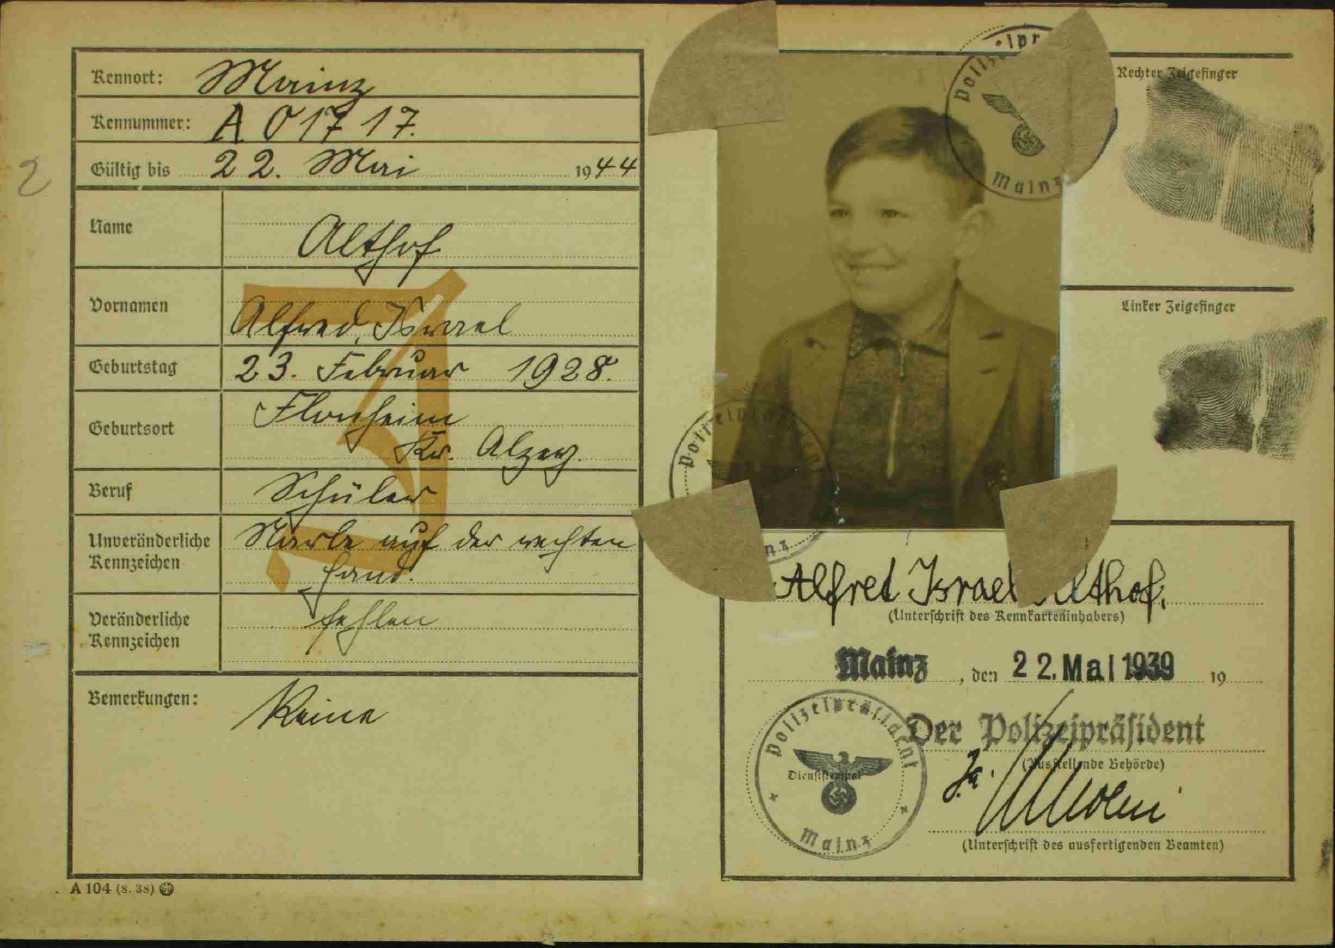 2
Kennort: Mainz
Kennummer: A 01717.
Gültig bis 22. Mai 1944
Name Althof
Vornamen Alfred, Israel
Geburtstag 23. Februar 1928.
Geburtsort Flonheim
Kr. Alzey.
Beruf Schüler
Unveränderliche Kennzeichen Narbe auf der rechten
Hand.
Veränderliche Kennzeichen fehlen
Bemerkungen: Keine
A 104 (8. 38)
J
Mainz
Polizeipräsident
Rechter Zeigefinger
Linker Zeigefinger
Alfret Israel Althof.
(Unterschrift des Kennkarteninhabers)
Mainz, den 22. Mai 1939 19
Der Polizeipräsident
(Ausstellende Behörde)
J.A.
(Unterschrift des ausfertigenden Beamten)
Polizeipräsident
Dienststempel
Mainz